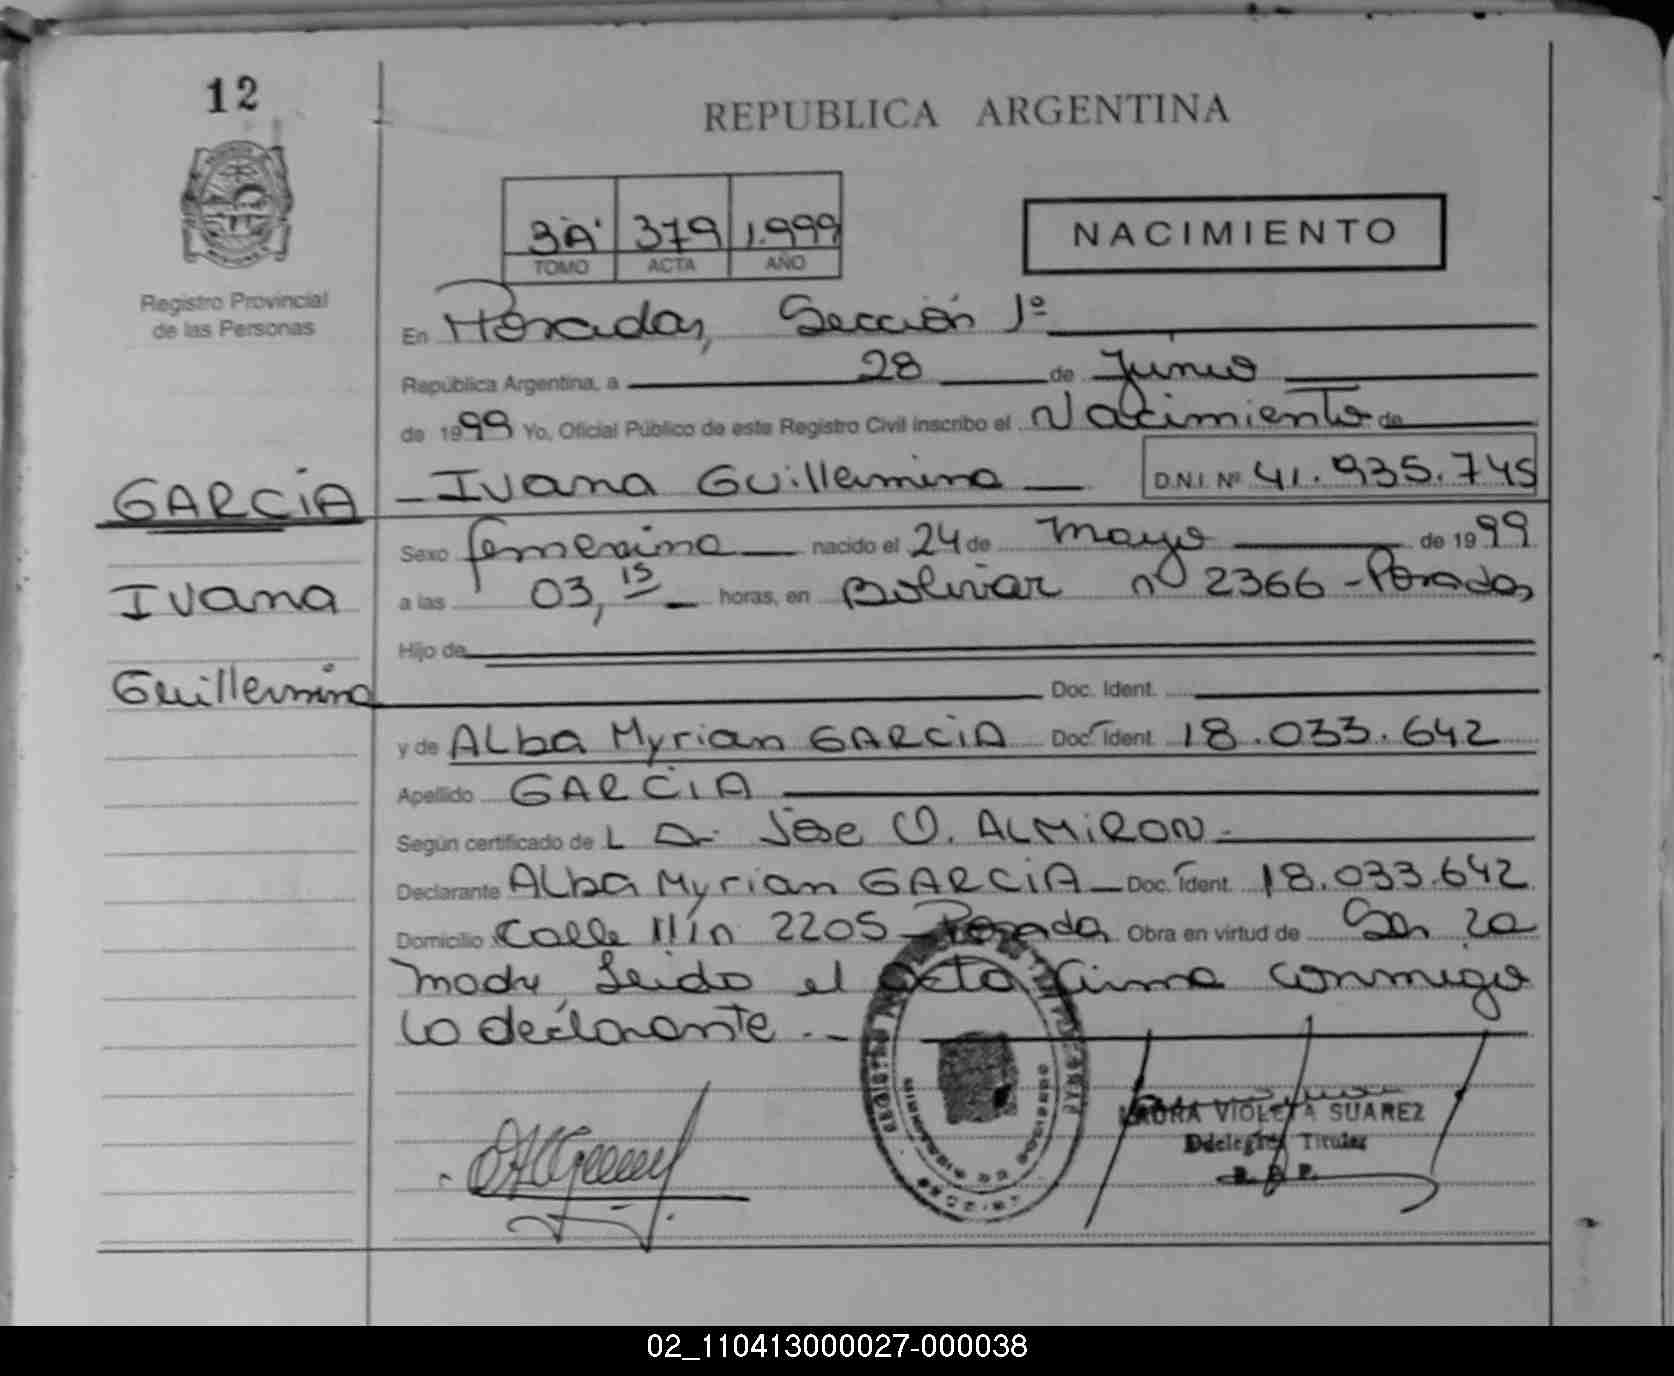 12
REPUBLICA ARGENTINA
3"A" 379 1.999
TOMO ACTA AÑO
NACIMIENTO
Registro Provincial
de las Personas
En Posadas, Sección 1º
República Argentina, a 28 de Junio
de 1999 Yo, Oficial Público de este Registro Civil inscribo el Nacimiento de
GARCIA Ivana Guillermina D.N.I. Nº 41.935.745
Sexo femenino nacido el 24 de mayo de 1999
Ivana a las 03,15 horas, en Bolivar nº 2366 - Posadas
Hijo de
Guillermina Doc. Ident.
y de Alba Myrian GARCIA Doc. Ident. 18.033.642
Apellido GARCIA
Según certificado de L Dr. Jose O. ALMIRON.-
Declarante Alba Myrian GARCIA Doc. Ident. 18.033.642
Domicilio Calle 2205 - Posadas Obra en virtud de Ser la
madre, Leida el acta firma conmigo
la declarante.-
REGISTRO
LAURA VIOLETA SUAREZ
Titular
R. P. P.
02_110413000027-000038